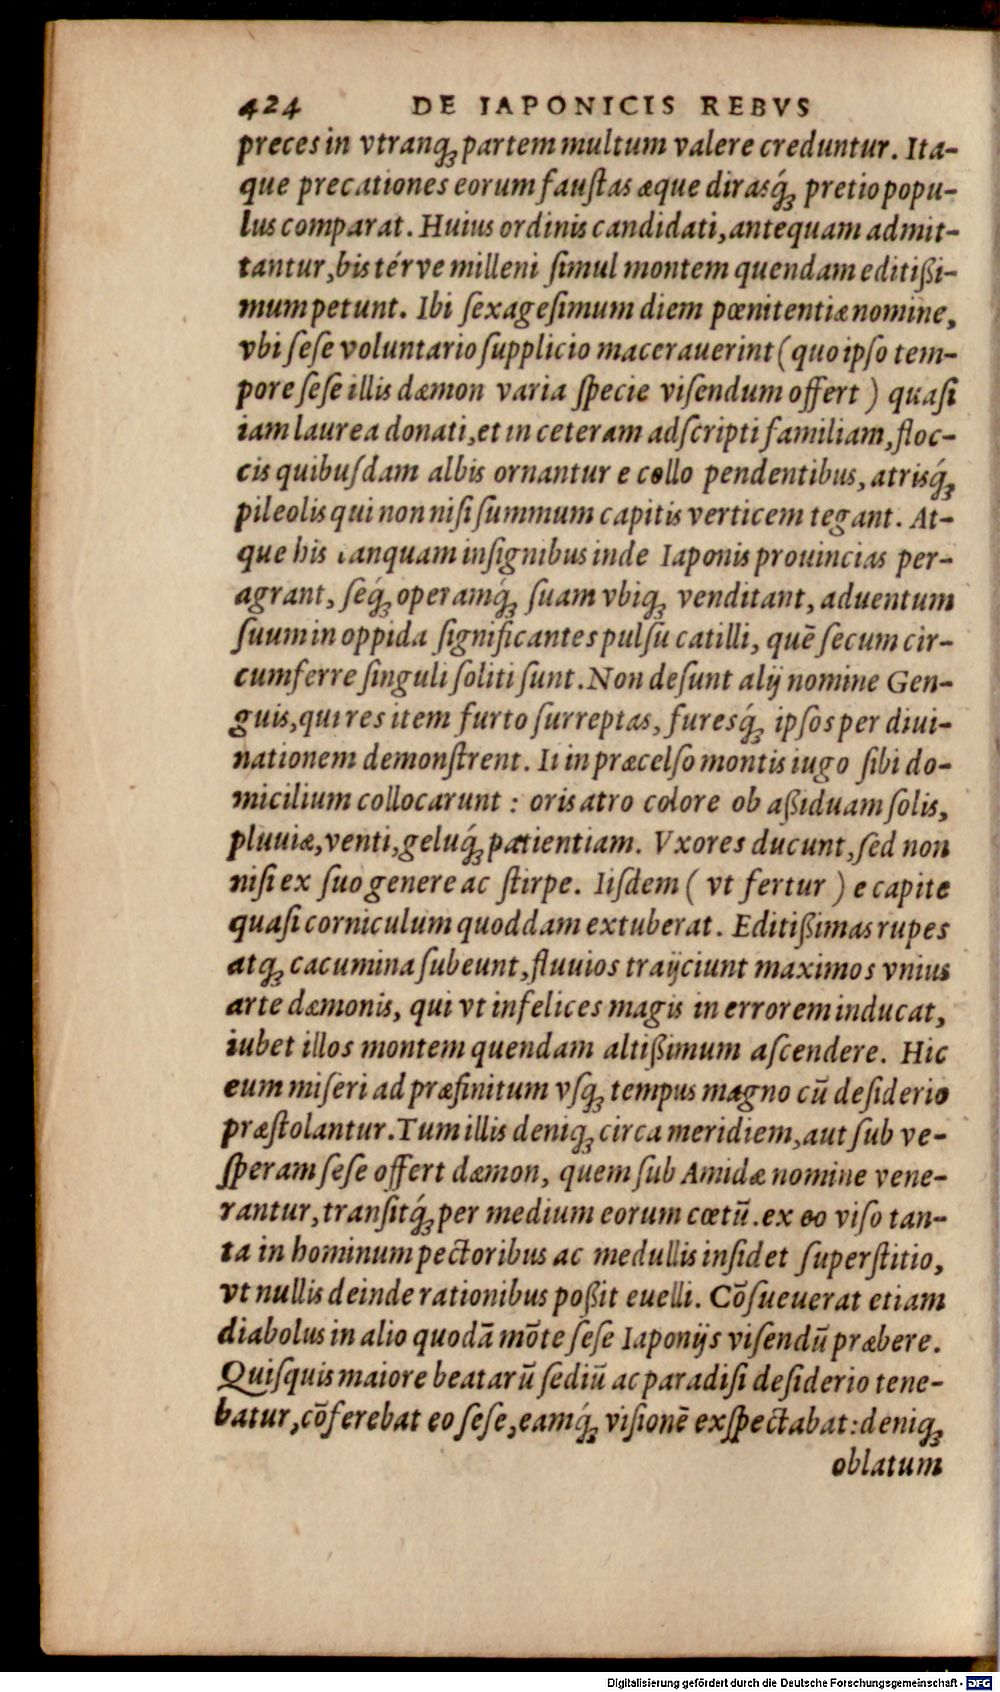 424 DE IAPONICIS REBVS
preces in vtranq́ꝫ partem multum valere creduntur. Ita-
que precationes eorum faustas æque dirasq́ꝫ pretio popu-
lus comparat. Huius ordinis candidati, antequam admit-
tantur, bis térve milleni simul montem quendam editißi-
mum petunt. Ibi sexagesimum diem pœnitentiæ nomine,
vbi sese voluntario supplicio macerauerint (quo ipso tem-
pore sese illis dæmon varia specie visendum offert) quasi
iam laurea donati, et in ceteram adscripti familiam, floc-
cis quibusdam albis ornantur e collo pendentibus, atrisq́ꝫ
pileolis qui non nisi summum capitis verticem tegant. At-
que his tanquam insignibus inde Iaponis prouincias per-
agrant, seq́ꝫ operamq́ꝫ suam vbiqꝫ venditant, aduentum
suum in oppida significantes pulsu catilli, quē secum cir-
cumferre singuli soliti sunt. Non desunt alij nomine Gen-
guis, qui res item furto surreptas, furesq́ꝫ ipsos per diui-
nationem demonstrent. Ii in præcelso montis iugo sibi do-
micilium collocarunt : oris atro colore ob aßiduam solis,
pluuiæ, venti, geluq́ꝫ patientiam. Vxores ducunt, sed non
nisi ex suo genere ac stirpe. Iisdem ( vt fertur ) e capite
quasi corniculum quoddam extuberat. Editißimas rupes
atqꝫ cacumina subeunt, fluuios traijciunt maximos vnius
arte dæmonis, qui vt infelices magis in errorem inducat,
iubet illos montem quendam altißimum ascendere. Hic
eum miseri ad præfinitum vsqꝫ tempus magno cū desiderio
præstolantur. Tum illis deniqꝫ circa meridiem, aut sub ve-
speram sese offert dæmon, quem sub Amidæ nomine vene-
rantur, transitq́ꝫ per medium eorum cœtū. ex eo viso tan-
ta in hominum pectoribus ac medullis insidet superstitio,
vt nullis deinde rationibus poßit euelli. Cōsueuerat etiam
diabolus in alio quodā mōte sese Iaponijs visendū præbere.
Quisquis maiore beatarū sediū ac paradisi desiderio tene-
batur, cōferebat eo sese, eamq́ꝫ visionē exspectabat: deniqꝫ
oblatum
Digitalisierung gefördert durch die Deutsche Forschungsgemeinschaft - DFG